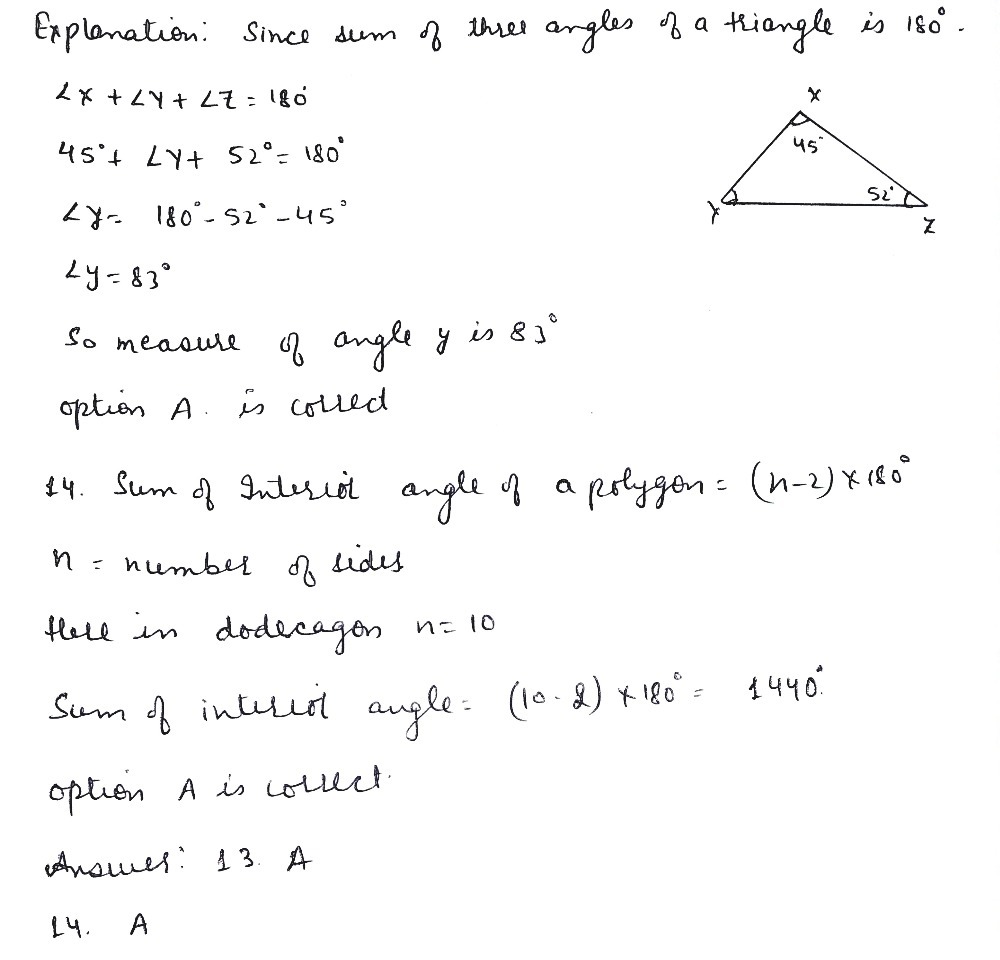 Explanation: Since sum of three angles of a triangle is 180°.
∠X + ∠Y + ∠Z = 180°
X
45° + ∠Y + 52° = 180°
45°
∠y = 180° - 52° - 45°
52°
Y
Z
∠y = 83°
So measure of angle y is 83°
option A. is correct
14. Sum of Interior angle of a polygon = (n-2) × 180°
n = number of sides
Here in dodecagon n = 10
Sum of interior angle = (10-2) × 180° = 1440°.
option A is correct.
Answer: 13. A
14. A